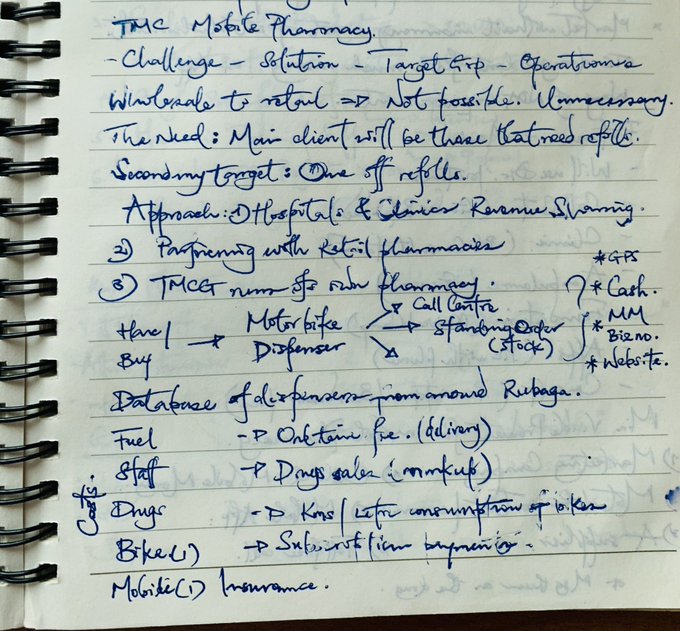 TMC Mobile Pharmacy.
- Challenge - Solution - Target Grp - Operations
Wholesale to retail => Not possible. Unnecessary.
The Need: Main client will be those that need refills.
Secondary target: One off refills.
Approach: 1) Hospitals & Clinics Revenue Sharing.
2) Partnering with Retail pharmacies
3) TMCG runs its own pharmacy.
* GPS
* Cash.
* MM
Bizno.
* Website.
Call Centre
Have/ → Motorbike → Standing Order
Buy Dispenser (stock)
Database of dispensers from around Rubaga.
Fuel → One time fee. (delivery)
Staff → Drugs sales (markup)
Costs.
Drugs → Kms/Letre consumption of bikes
Bike (1) → Subscription payments.
Mobile (1) Insurance.